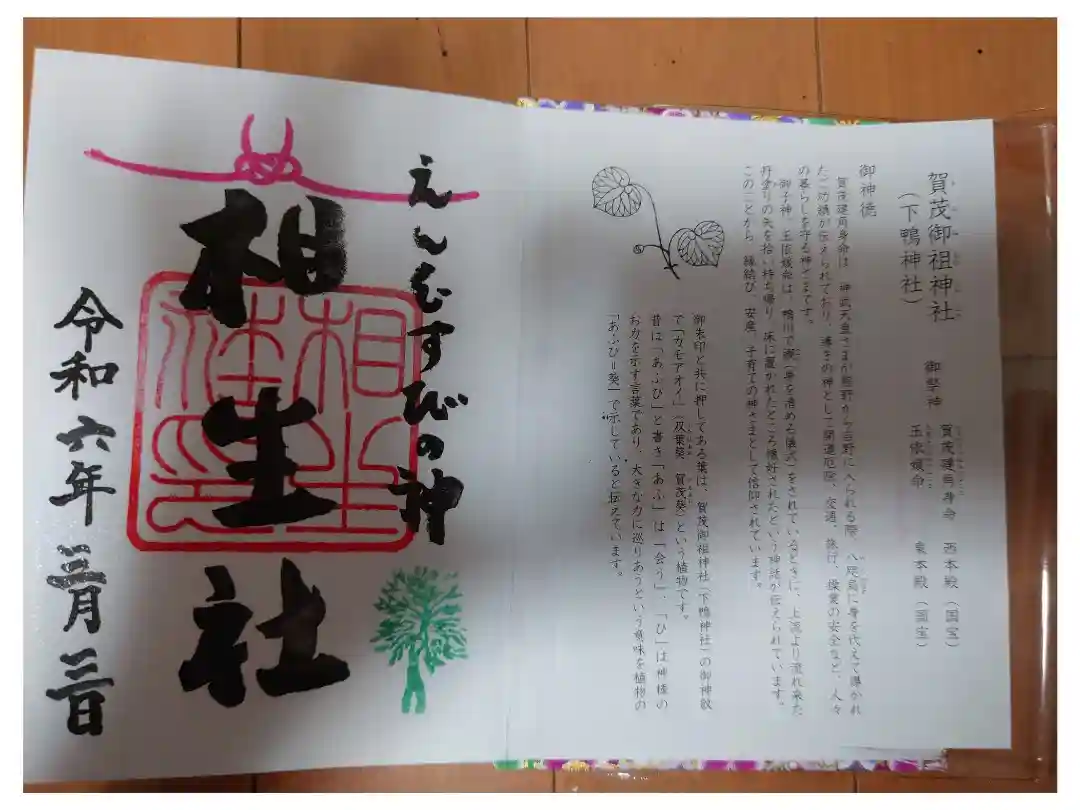 賀茂御祖神社
（下鴨神社）
御祭神
賀茂建角身命　西本殿（国宝）
玉依媛命　東本殿（国宝）
御神徳
賀茂建角身命は、神武天皇さまが熊野から吉野に入られる際、八咫烏に身を代えて導かれ
たご功績が伝えられており、導きの神として開運厄除、交通、旅行、操業の安全など、人々
の暮らしを守る神さまです。
御子神、玉依媛命は、鴨川で禊（身を清める儀式）をされているときに、上流より流れ来た
丹塗りの矢を拾い持ち帰り、床に置かれたところ懐妊されたという神話が伝えられています。
このことから、縁結び、安産、子育ての神さまとして信仰されています。
御朱印と共に押してある葉は、賀茂御祖神社（下鴨神社）の御神紋
で「カモアオイ」（双葉葵、賀茂葵）という植物です。
昔は「あふひ」と書き「あふ」は「会う」、「ひ」は神様の
お力を示す言葉であり、大きな力に巡りあうという意味を植物の
「あふひ＝葵」で示していると伝えています。
えんむすびの神
相生社
相生社印
令和六年三月三日